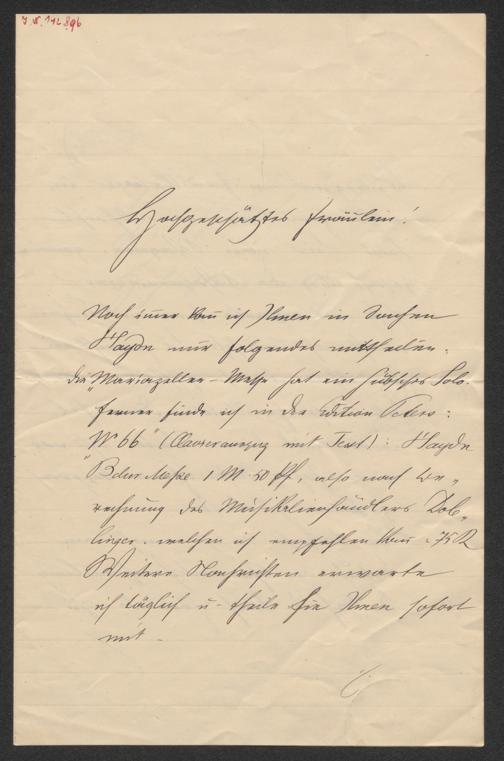 I. N. 142.896
Hochgeschätztes Fräulein!
Noch immer kann ich Ihnen in Sachen
Haydn nur folgendes mittheilen.
die "Mariazeller-Messe hat ein hübsches Solo.
ferner finde ich in der Edition Peters:
No 66" (Clavierauszug mit Text): Haydn
"Bdur Messe 1 M 50 Pf, also nach Be-
rechnung des Musikalienhändlers Dob-
linger, welchen ich empfehlen kann
Weitere Nachrichten erwarte
ich täglich u. theile sie Ihnen sofort
mit -